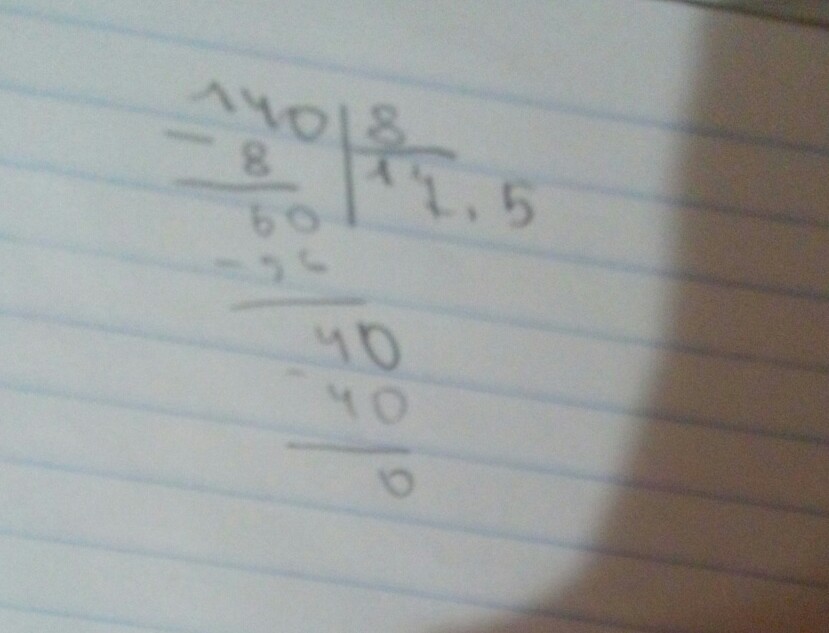 140 8
- 8 17,5
60
- 56
40
- 40
0